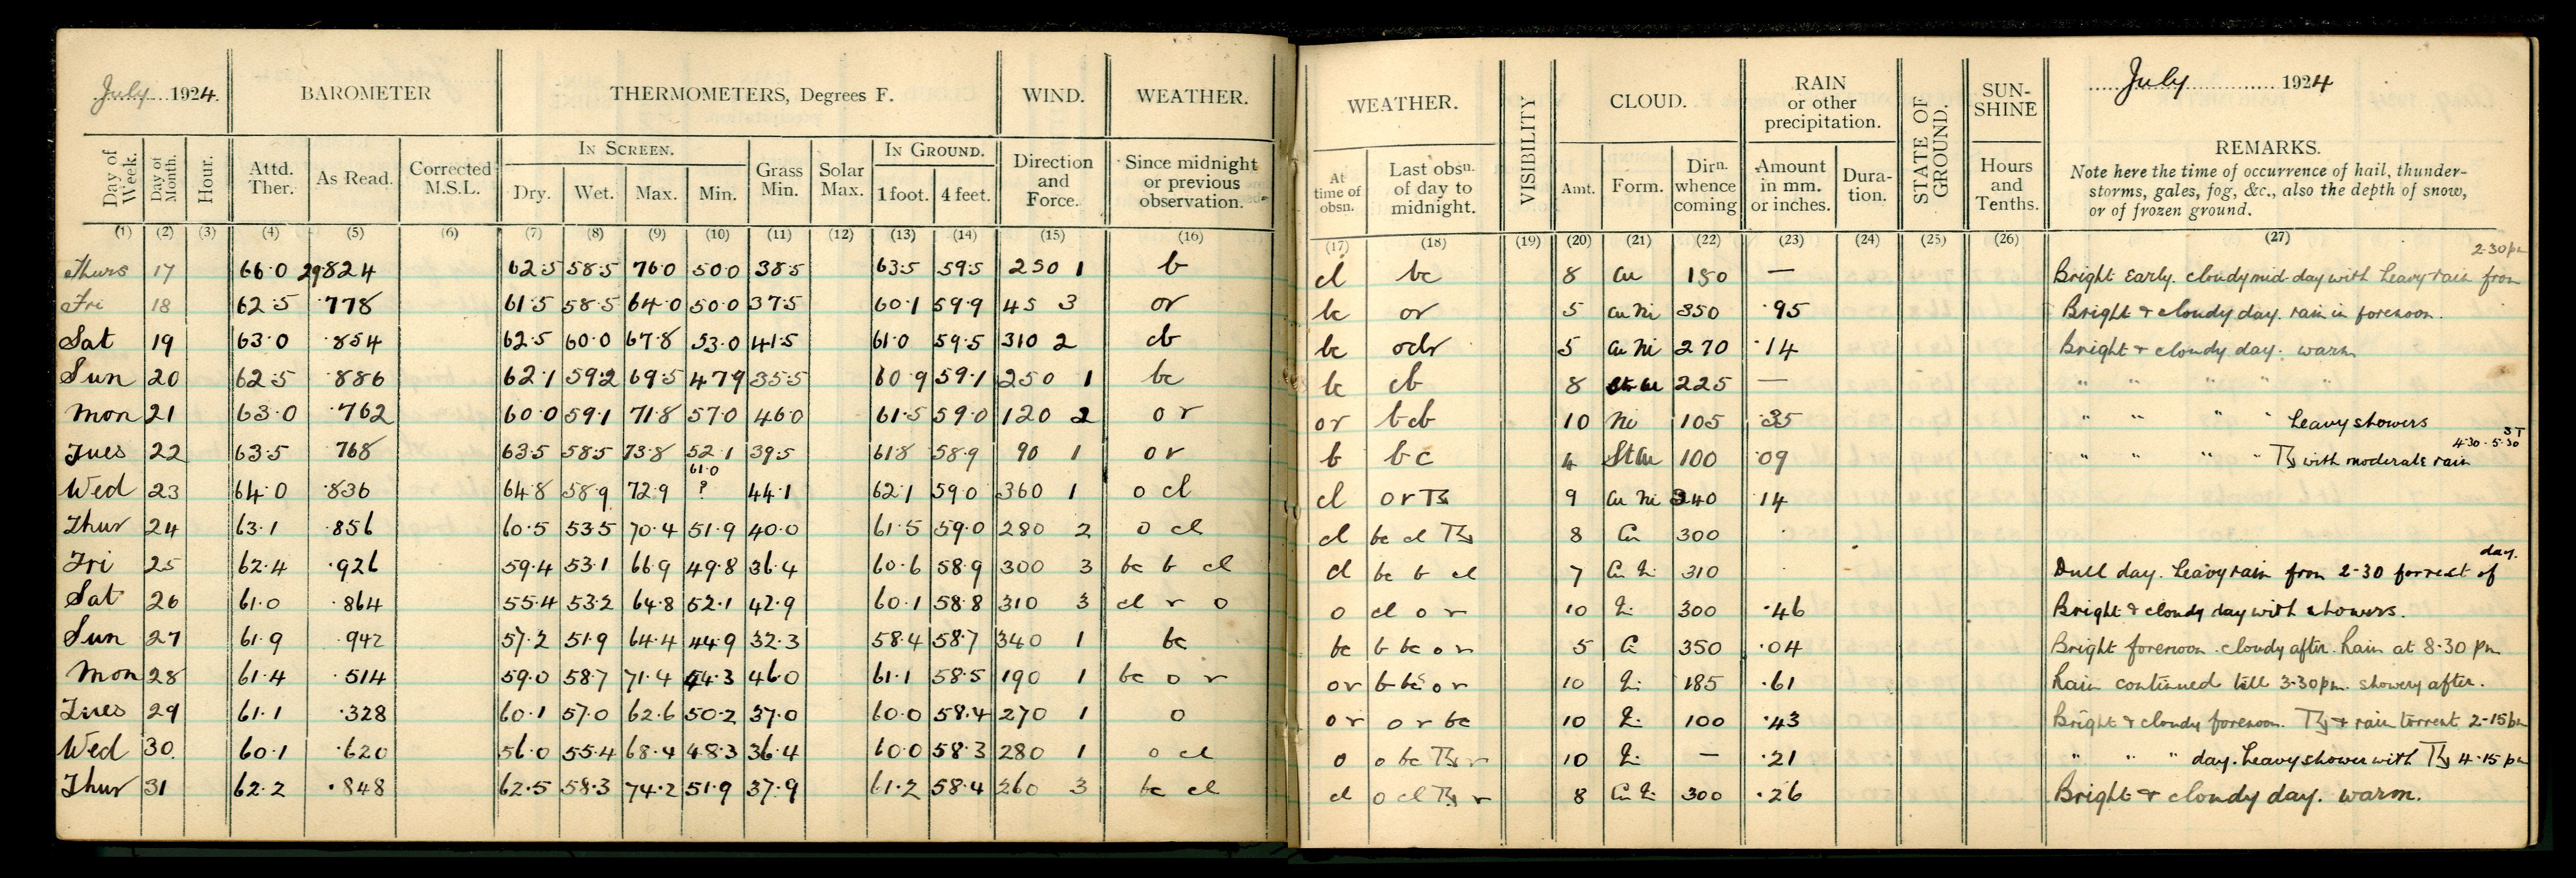 July 1924.
BAROMETER THERMOMETERS, Degrees F. WIND. WEATHER.
Day of Week. Day of Month. Hour. Attd. Ther. As Read. Corrected M.S.L. IN SCREEN. Dry. Wet. Max. Min. Grass Min. Solar Max. IN GROUND. 1 foot. 4 feet. Direction and Force. Since midnight or previous observation.
(1) (2) (3) (4) (5) (6) (7) (8) (9) (10) (11) (12) (13) (14) (15) (16)
Thurs 17 66.0 29.824 62.5 58.5 76.0 50.0 38.5 63.5 59.5 250 1 b
Fri 18 62.5 .778 61.5 58.5 64.0 50.0 37.5 60.1 59.9 45 3 or
Sat 19 63.0 .854 62.5 60.0 67.8 53.0 41.5 61.0 59.5 310 2 cb
Sun 20 62.5 .886 62.1 59.2 69.5 47.9 35.5 60.9 59.1 250 1 bc
Mon 21 63.0 .762 60.0 59.1 71.8 57.0 46.0 61.5 59.0 120 2 or
Tues 22 63.5 768 63.5 58.5 73.8 52.1 39.5 61.8 58.9 90 1 or
61.0
Wed 23 64.0 .836 64.8 58.9 72.9 ? 44.1 62.1 59.0 360 1 o cl
Thur 24 63.1 .856 60.5 53.5 70.4 51.9 40.0 61.5 59.0 280 2 o cl
Fri 25 62.4 .926 59.4 53.1 66.9 49.8 36.4 60.6 58.9 300 3 bc b cl
Sat 26 61.0 .864 55.4 53.2 64.8 52.1 42.9 60.1 58.8 310 3 cl r o
Sun 27 61.9 .942 57.2 51.9 64.4 44.9 32.3 58.4 58.7 340 1 bc
Mon 28 61.4 .514 59.0 58.7 71.4 54.3 46.0 61.1 58.5 190 1 bc o r
Tues 29 61.1 .328 60.1 57.0 62.6 50.2 37.0 60.0 58.4 270 1 o
Wed 30. 60.1 .620 56.0 55.4 68.4 48.3 36.4 60.0 58.3 280 1 o cl
Thur 31 62.2 .848 62.5 58.3 74.2 51.9 37.9 61.2 58.4 260 3 bc cl
July 1924
WEATHER. VISIBILITY CLOUD. RAIN or other precipitation. STATE OF GROUND. SUN-SHINE REMARKS.
At time of obsn. Last obsn. of day to midnight. Amt. Form. Dirn. whence coming Amount in mm. or inches. Dura-tion. Hours and Tenths.
Note here the time of occurrence of hail, thunder-
storms, gales, fog, &c., also the depth of snow,
or of frozen ground.
(17) (18) (19) (20) (21) (22) (23) (24) (25) (26) (27)
2.30pm
cl bc 8 cu 180 — Bright Early. cloudy mid-day with heavy rain from
bc or 5 cu ni 350 .95 Bright & cloudy day. rain in forenoon.
bc 5 cu ni 270 .14 Bright & cloudy day. warm
bc cb 8 225 — " " " " "
or bcb 10 Ni 105 .35 " " " " heavy showers
4.30-5.30 ST
b bc 4 St cu 100 .09 " " " " with moderate rain
cl or 9 cu ni 240 .14
cl bc cl 8 Cu 300 .
day.
cl bc b cl 7 310 . Dull day. heavy rain from 2.30 for rest of
o cl o r 10 300 .46 Bright & cloudy day with showers.
bc b bc o r 5 350 .04 Bright forenoon. cloudy after. Rain at 8.30 pm
or b bc o r 10 185 .61 Rain continued till 3.30pm. showery after.
or o r bc 10 100 .43 Bright & cloudy forenoon. & rain torrent 2-15pm
o o bc r 10 — .21 " " " day. heavy shower with 4.15 pm
cl o cl r 8 300 .26 Bright & cloudy day. warm.